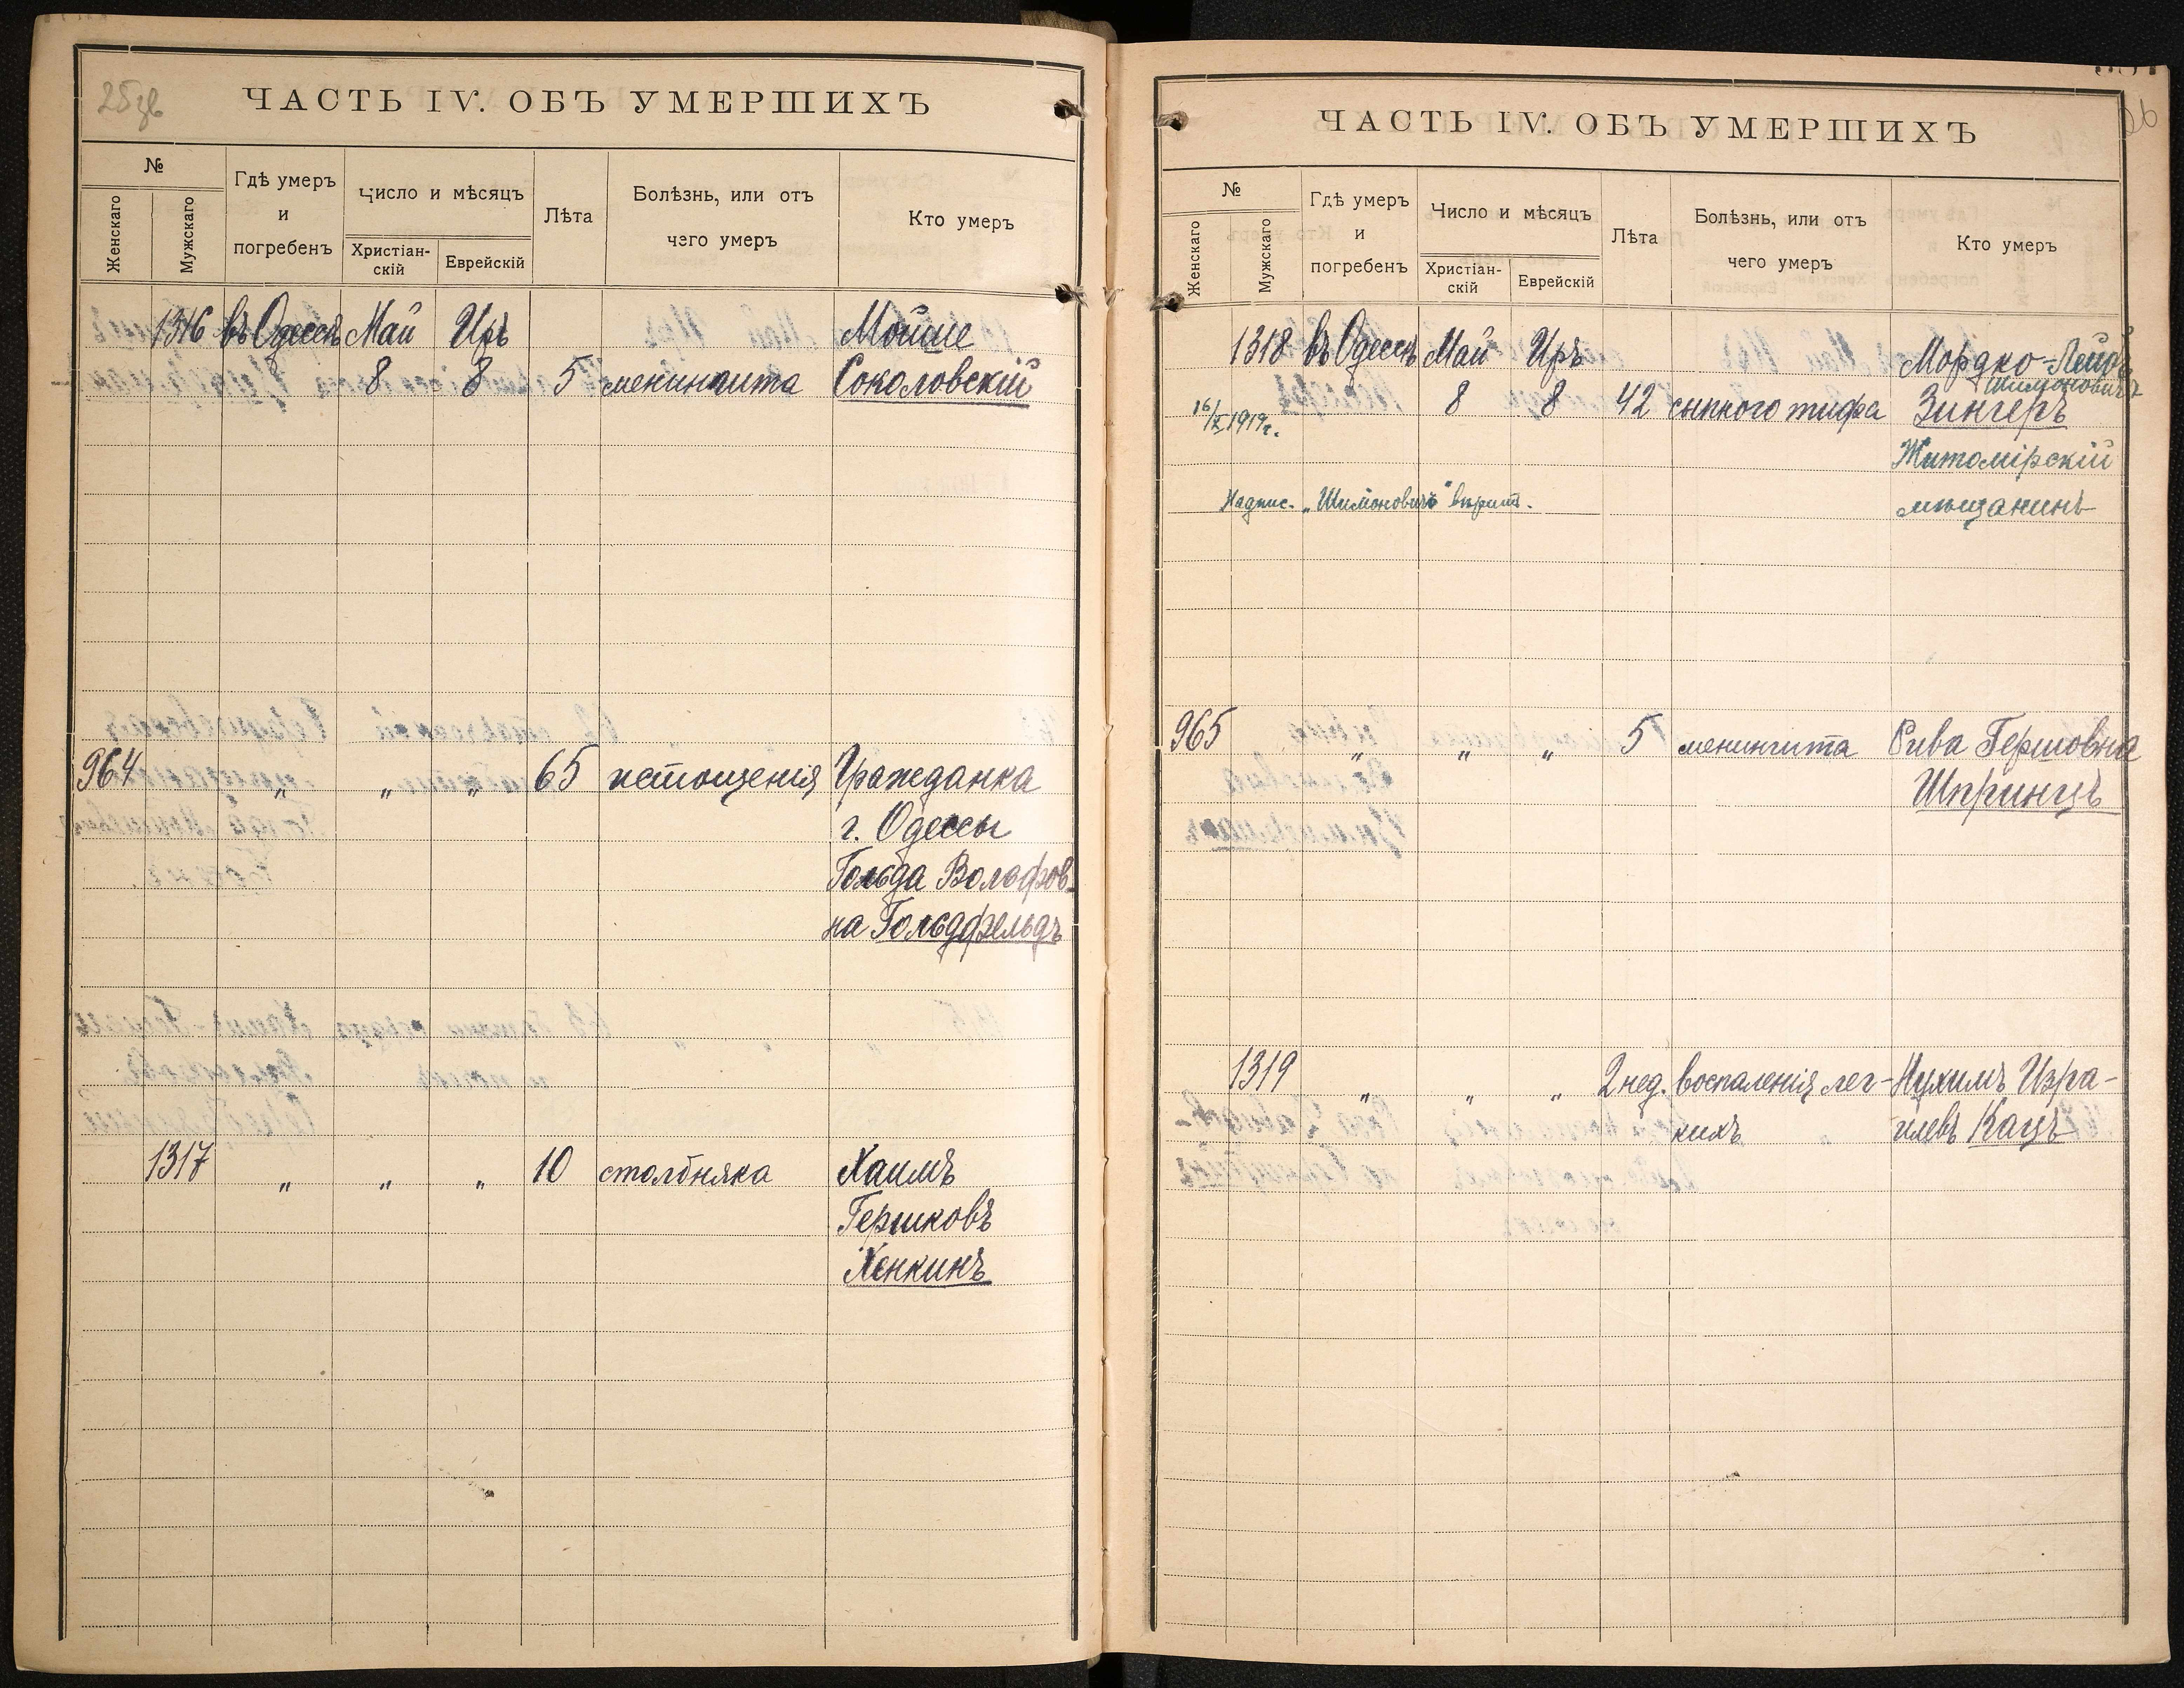 ЧАСТЬ IV. ОБЪ УМЕРШИХЪ
№
Женскаго
Мужскаго
Гдѣ умеръ
и
погребенъ
Число и мѣсяцъ
Христіан-
скій
Еврейскій
Лѣта
Болѣзнь, или отъ
чего умеръ
Кто умеръ
1316 въ Одессѣ Май Иръ Мойше
8 8 5 менингита Соколовскій
964 „ „ „ 65 истощенія Гражданка
г. Одессы
Гольда Вольфов-
на Гольдфельдъ
1317 „ „ „ 10 столбняка Хаимъ
Гершковъ
Хенкинъ
26
ЧАСТЬ IV. ОБЪ УМЕРШИХЪ
№
Женскаго
Мужскаго
Гдѣ умеръ
и
погребенъ
Число и мѣсяцъ
Христіан-
скій
Еврейскій
Лѣта
Болѣзнь, или отъ
чего умеръ
Кто умеръ
1318 въ Одессѣ Май Иръ Мордко-Лейбъ
Шимоновичъ
16/X 1919 г. 8 8 42 сыпного тифа Зингеръ
Житомірскій
Надпис. „Шимоновичъ" вѣрит. мѣщанинъ
965 „ „ „ 5 менингита Рива Гершовна
Шпринцъ
1319 „ „ „ 2 нед. воспаленія лег- Нухимъ Изра-
кихъ илевъ Кацъ